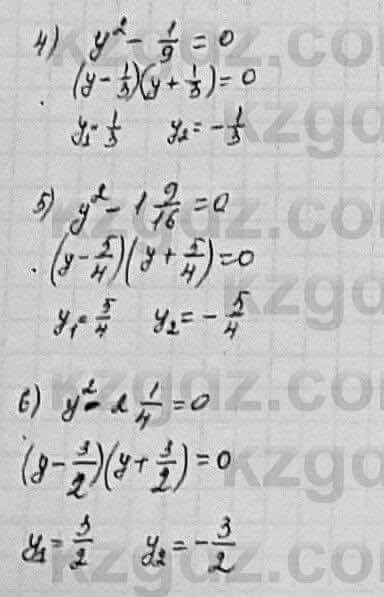 4) y² - 1/9 = 0
(y - 1/3)(y + 1/3) = 0
y₁ = 1/3 y₂ = -1/3
5) y² - 1 9/16 = 0
(y - 5/4)(y + 5/4) = 0
y₁ = 5/4 y₂ = -5/4
6) y² - 2 1/4 = 0
(y - 3/2)(y + 3/2) = 0
y₁ = 3/2 y₂ = -3/2